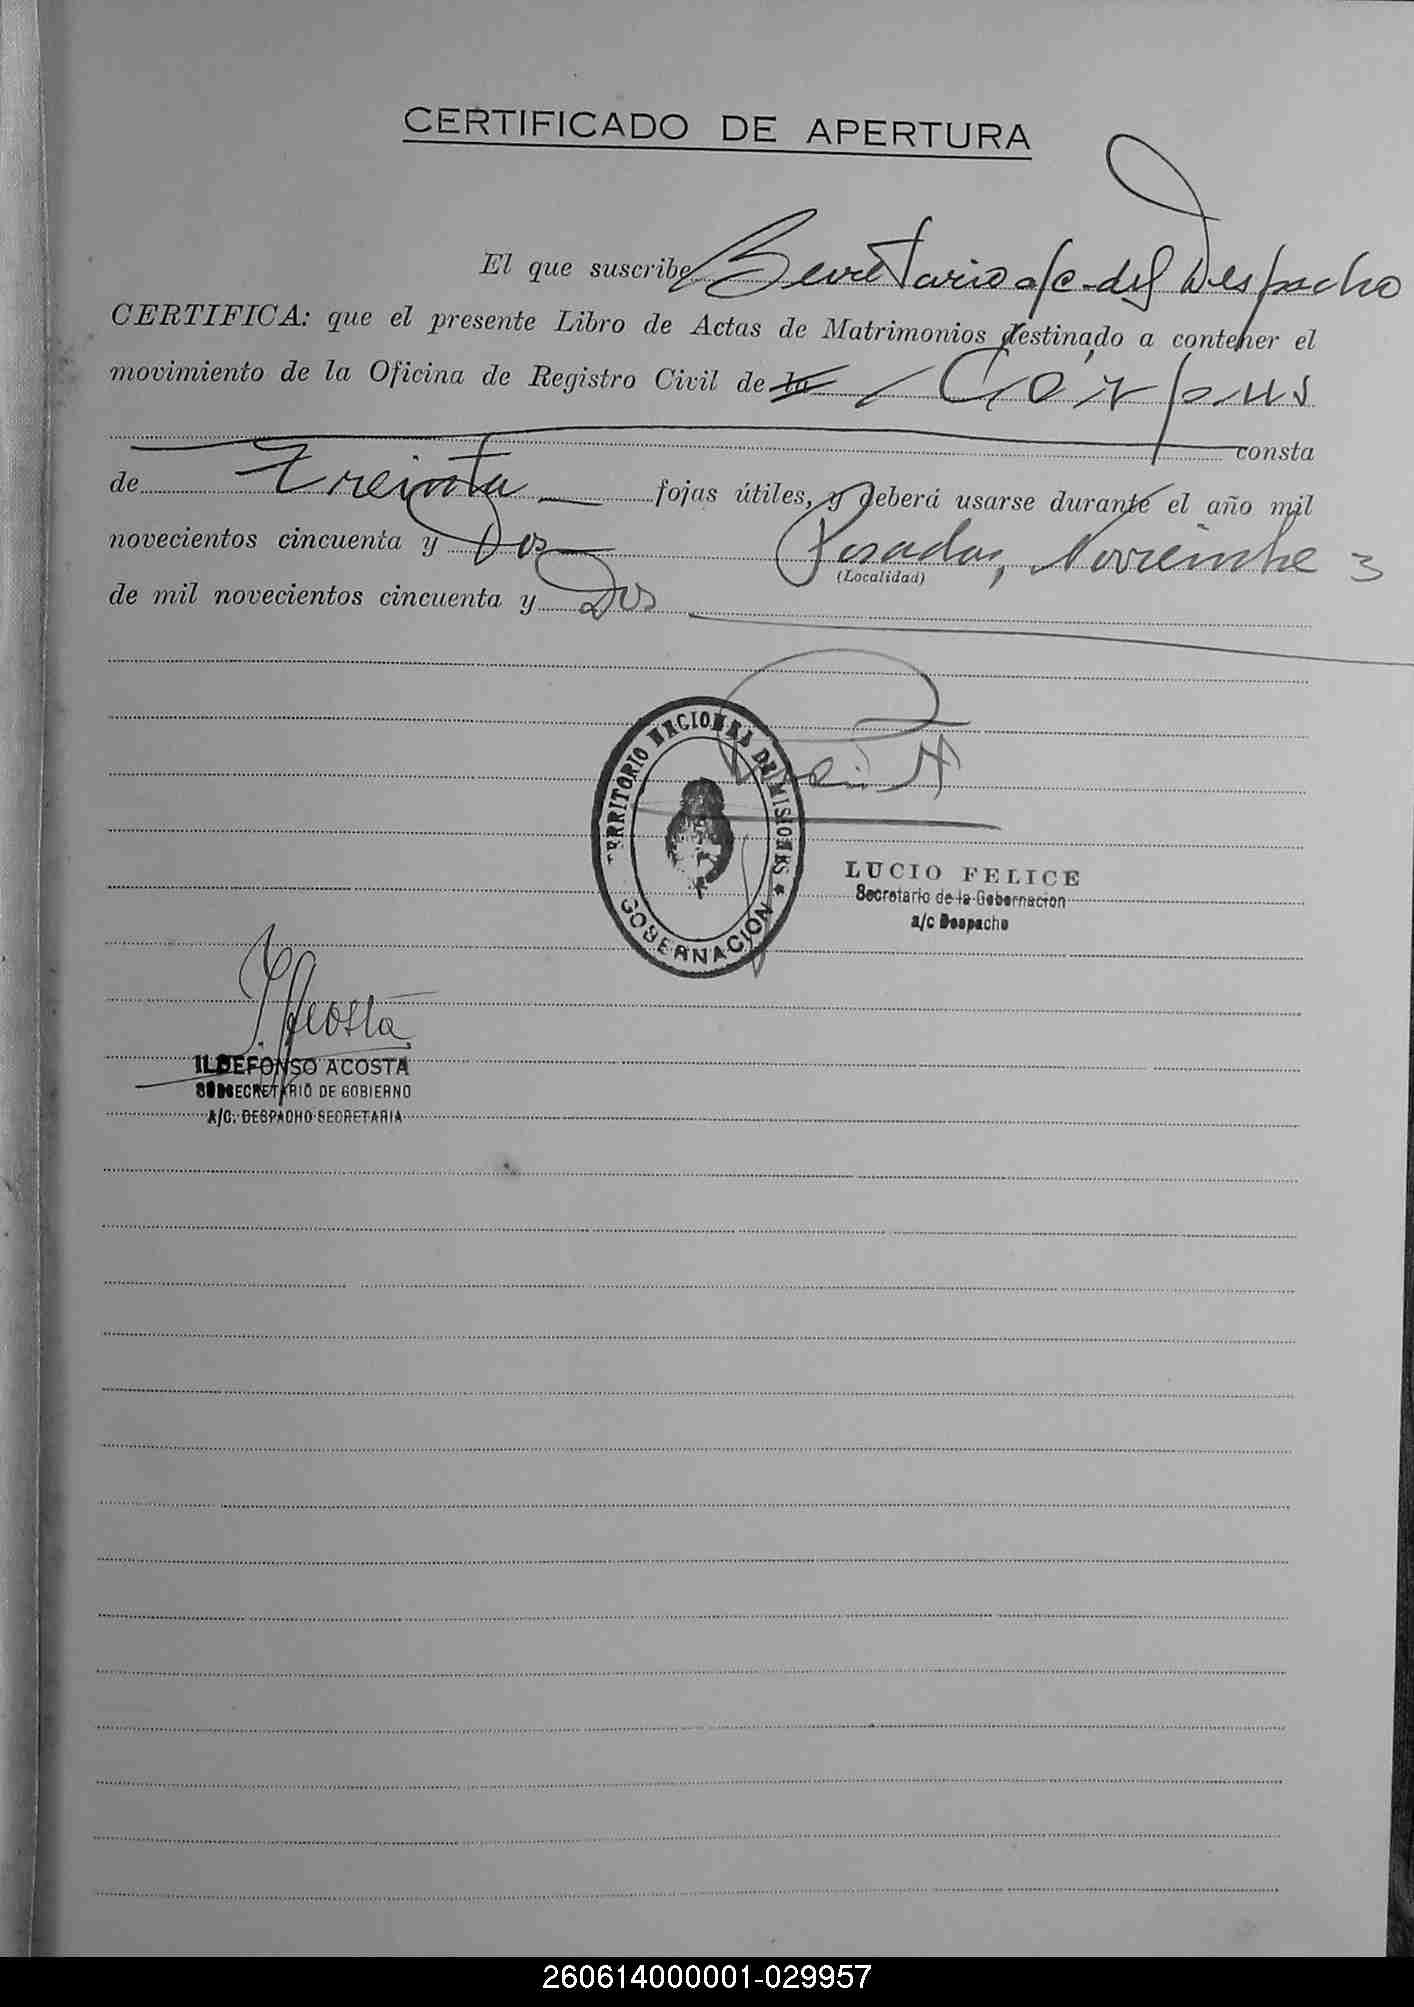 CERTIFICADO DE APERTURA
El que suscribe Secretario a/c. del Despacho
CERTIFICA: que el presente Libro de Actas de Matrimonios destinado a contener el
movimiento de la Oficina de Registro Civil de la Corpus
consta
de Treinta fojas útiles, y deberá usarse durante el año mil
novecientos cincuenta y Dos Posadas, Noviembre 3
(Localidad)
de mil novecientos cincuenta y Dos
TERRITORIO NACIONAL DE MISIONES
GOBERNACION
LUCIO FELICE
Secretario de la Gobernacion
a/c Despacho
Acosta
ILDEFONSO ACOSTA
SUBSECRETARIO DE GOBIERNO
A/C. DESPACHO SECRETARIA
260614000001-029957